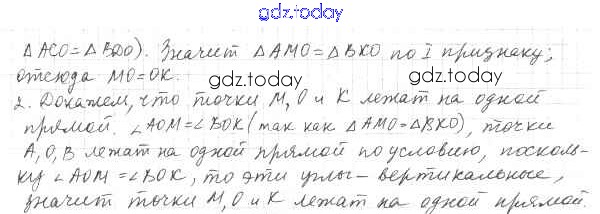 gdz.today
△ACO=△BDO). Значит △AMO=△BKO по I признаку;
отсюда MO=OK.
gdz.today
gdz.today
2. Докажем, что точки M, O и K лежат на одной
прямой. ∠AOM=∠BOK (так как △AMO=△BKO), точки
A, O, B лежат на одной прямой по условию, посколь-
ку ∠AOM=∠BOK, то эти углы - вертикальные,
значит точки M, O и K лежат на одной прямой.
gdz.today
gdz.today